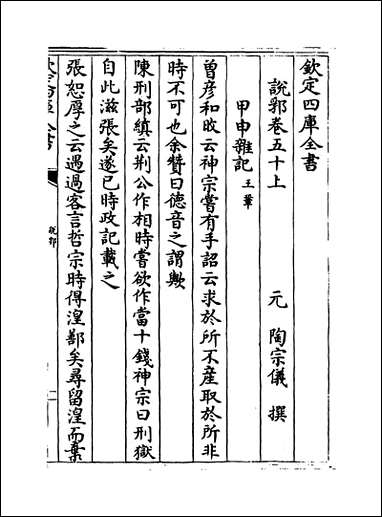 欽定四庫全書
說郛卷五十上
元 陶宗儀 撰
甲申雜記 王鞏
曾彦和旼云神宗嘗有手詔云求於所不産取於所非
時不可也余贊曰德音之謂歟
陳刑部縝云荆公作相時嘗欲作當十錢神宗曰刑獄
自此滋張矣遂已時政記載之
張恕厚之云遇過客言哲宗時得湟鄯矣尋留湟而棄
說郛